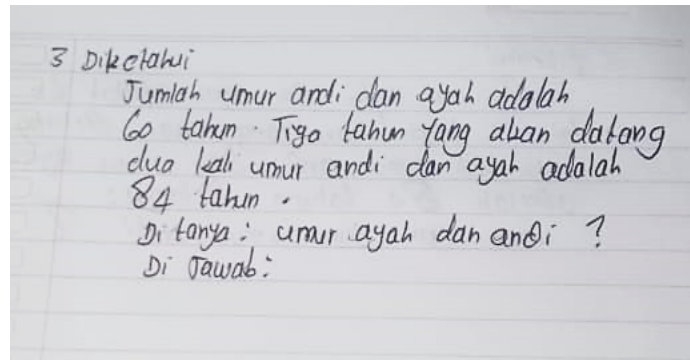 3 Diketahui
Jumlah umur andi dan ayah adalah
60 tahun. Tiga tahun yang akan datang
dua kali umur andi dan ayah adalah
84 tahun.
Di tanya: umur ayah dan andi ?
Di Jawab: